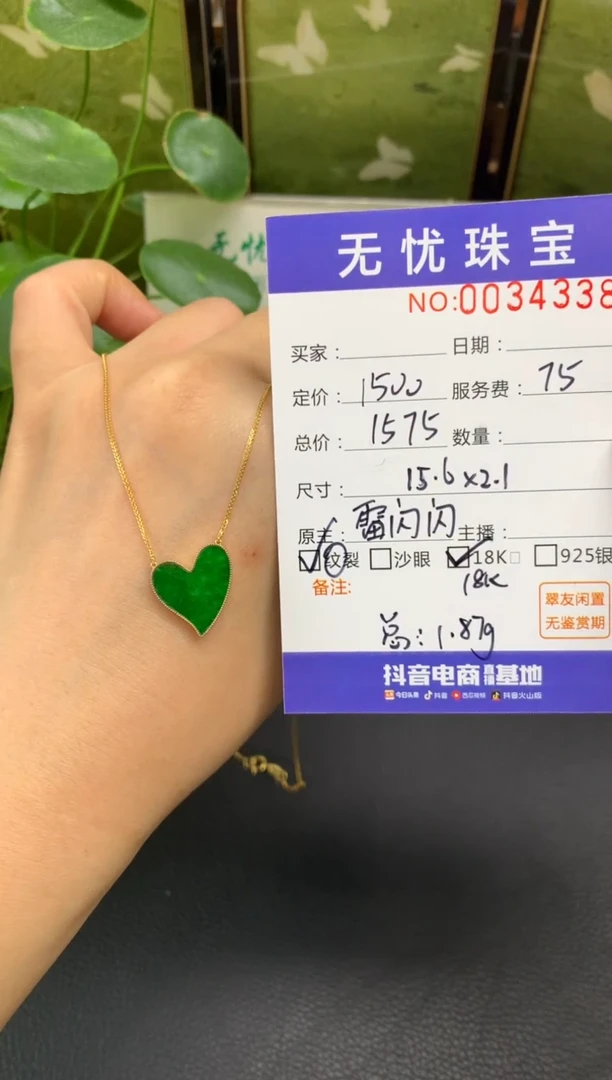 无忧
无忧珠宝
NO:0034338
买家：
日期：
定价：1500 服务费：75
总价：1575 数量：
尺寸：15.6×2.1
原主：雷闪闪 主播：
纹裂 沙眼 18K 925银
18K
备注：
翠友闲置
无鉴赏期
总：1.87g
抖音电商直播基地
今日头条 抖音 西瓜视频 抖音火山版